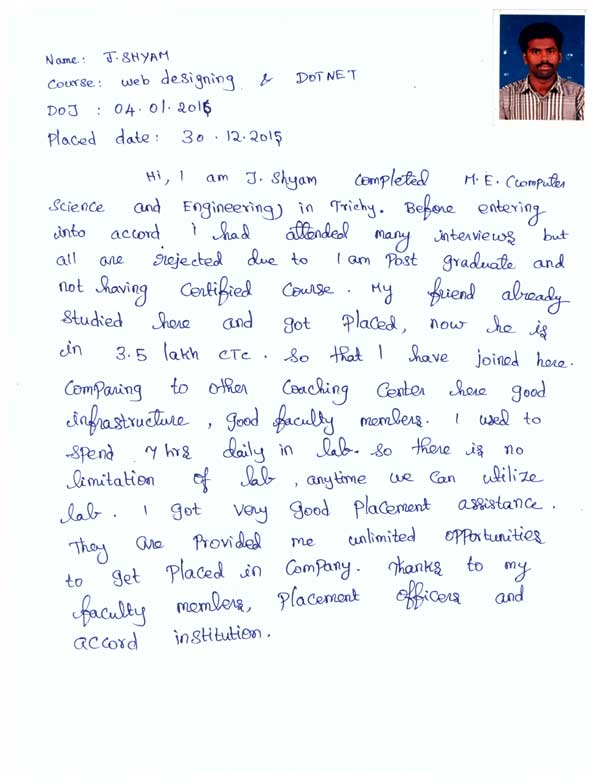 Name: J. SHYAM
Course: web designing & DOTNET
DOJ : 04.01.2015
Placed date: 30.12.2015
Hi, I am J. Shyam completed M.E. (Computer
Science and Engineering) in Trichy. Before entering
into accord I had attended many interviews but
all are rejected due to I am Post graduate and
not having Certified Course. My friend already
Studied here and got Placed, now he is
in 3.5 lakh CTC. So that I have joined here.
Comparing to other Coaching Center here good
infrastructure, good faculty members. I used to
spend 7 hrs daily in lab. So there is no
limitation of lab, anytime we can utilize
lab. I got very good Placement assistance.
They are Provided me unlimited opportunities
to get Placed in Company. Thanks to my
faculty members, Placement officers and
accord institution.